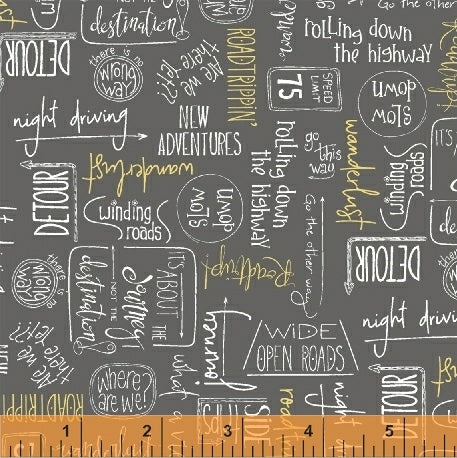 destination!
Go the other
there is no
wrong
way
Are we
there
yet??
ROADTRIPPIN'
rolling down
the highway
DETOUR
SPEED
LIMIT
75
SLOW
DOWN
night driving
NEW
ADVENTURES
rolling down
the highway
go
this
way
wanderlust
IT'S A
wanderlust
winding
roads
DETOUR
winding
roads
SLOW
DOWN
Go the other way
DETOUR
there is no
wrong
way
IT'S ABOUT THE
Journey
NOT THE
destination!
Roadtrip!
night drivi
Are we
there
yet??
journey
WIDE
OPEN ROADS
NEW
ROADTRIPPIN
where
are we?
what a
night
DETOUR
1 2 3 4 5